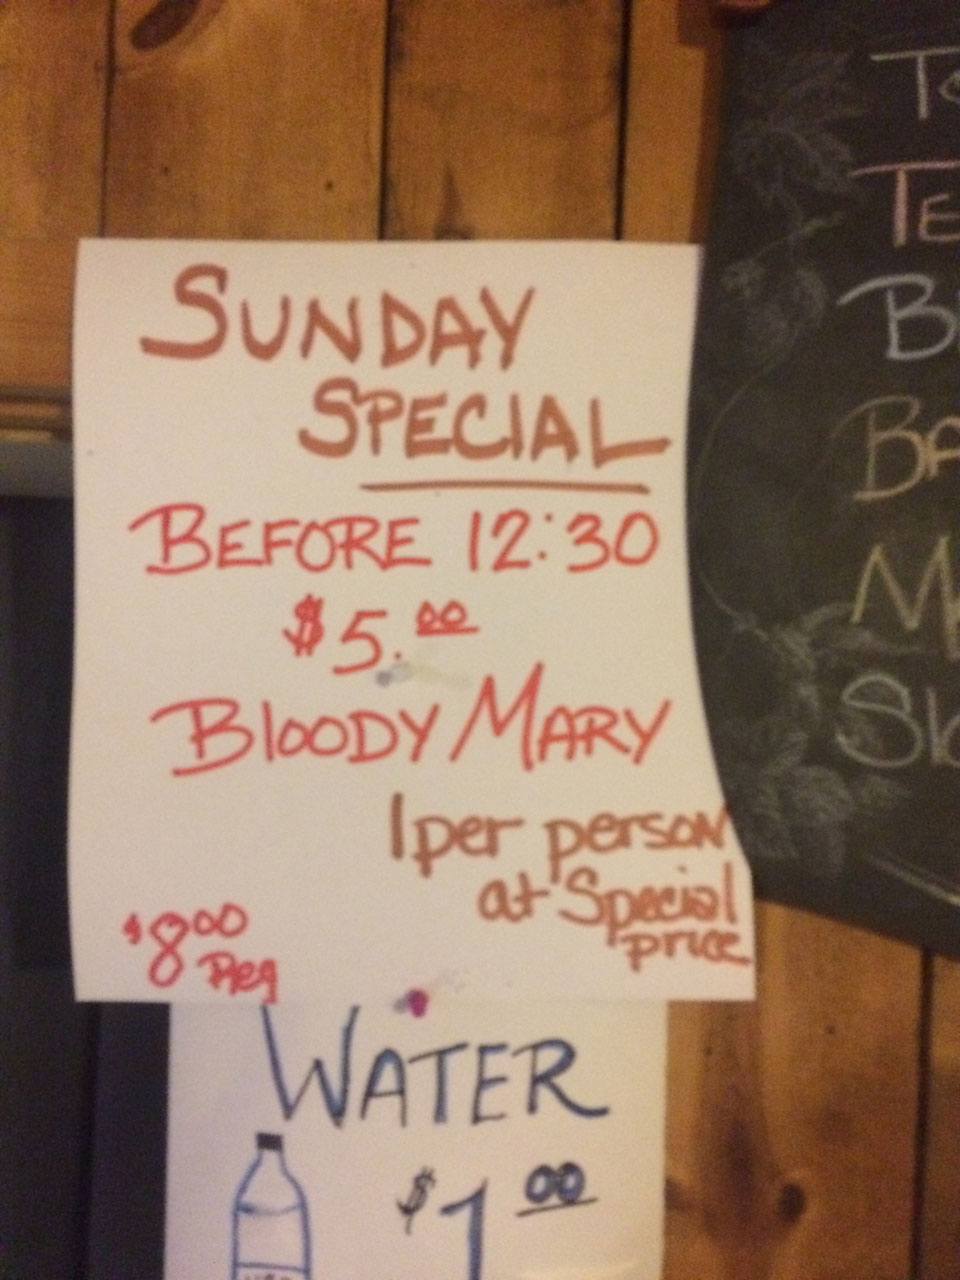 SUNDAY
SPECIAL
BEFORE 12:30
$5.00
BLOODY MARY
1 per person
at Special
price
$8.00
Reg
WATER
$1.00